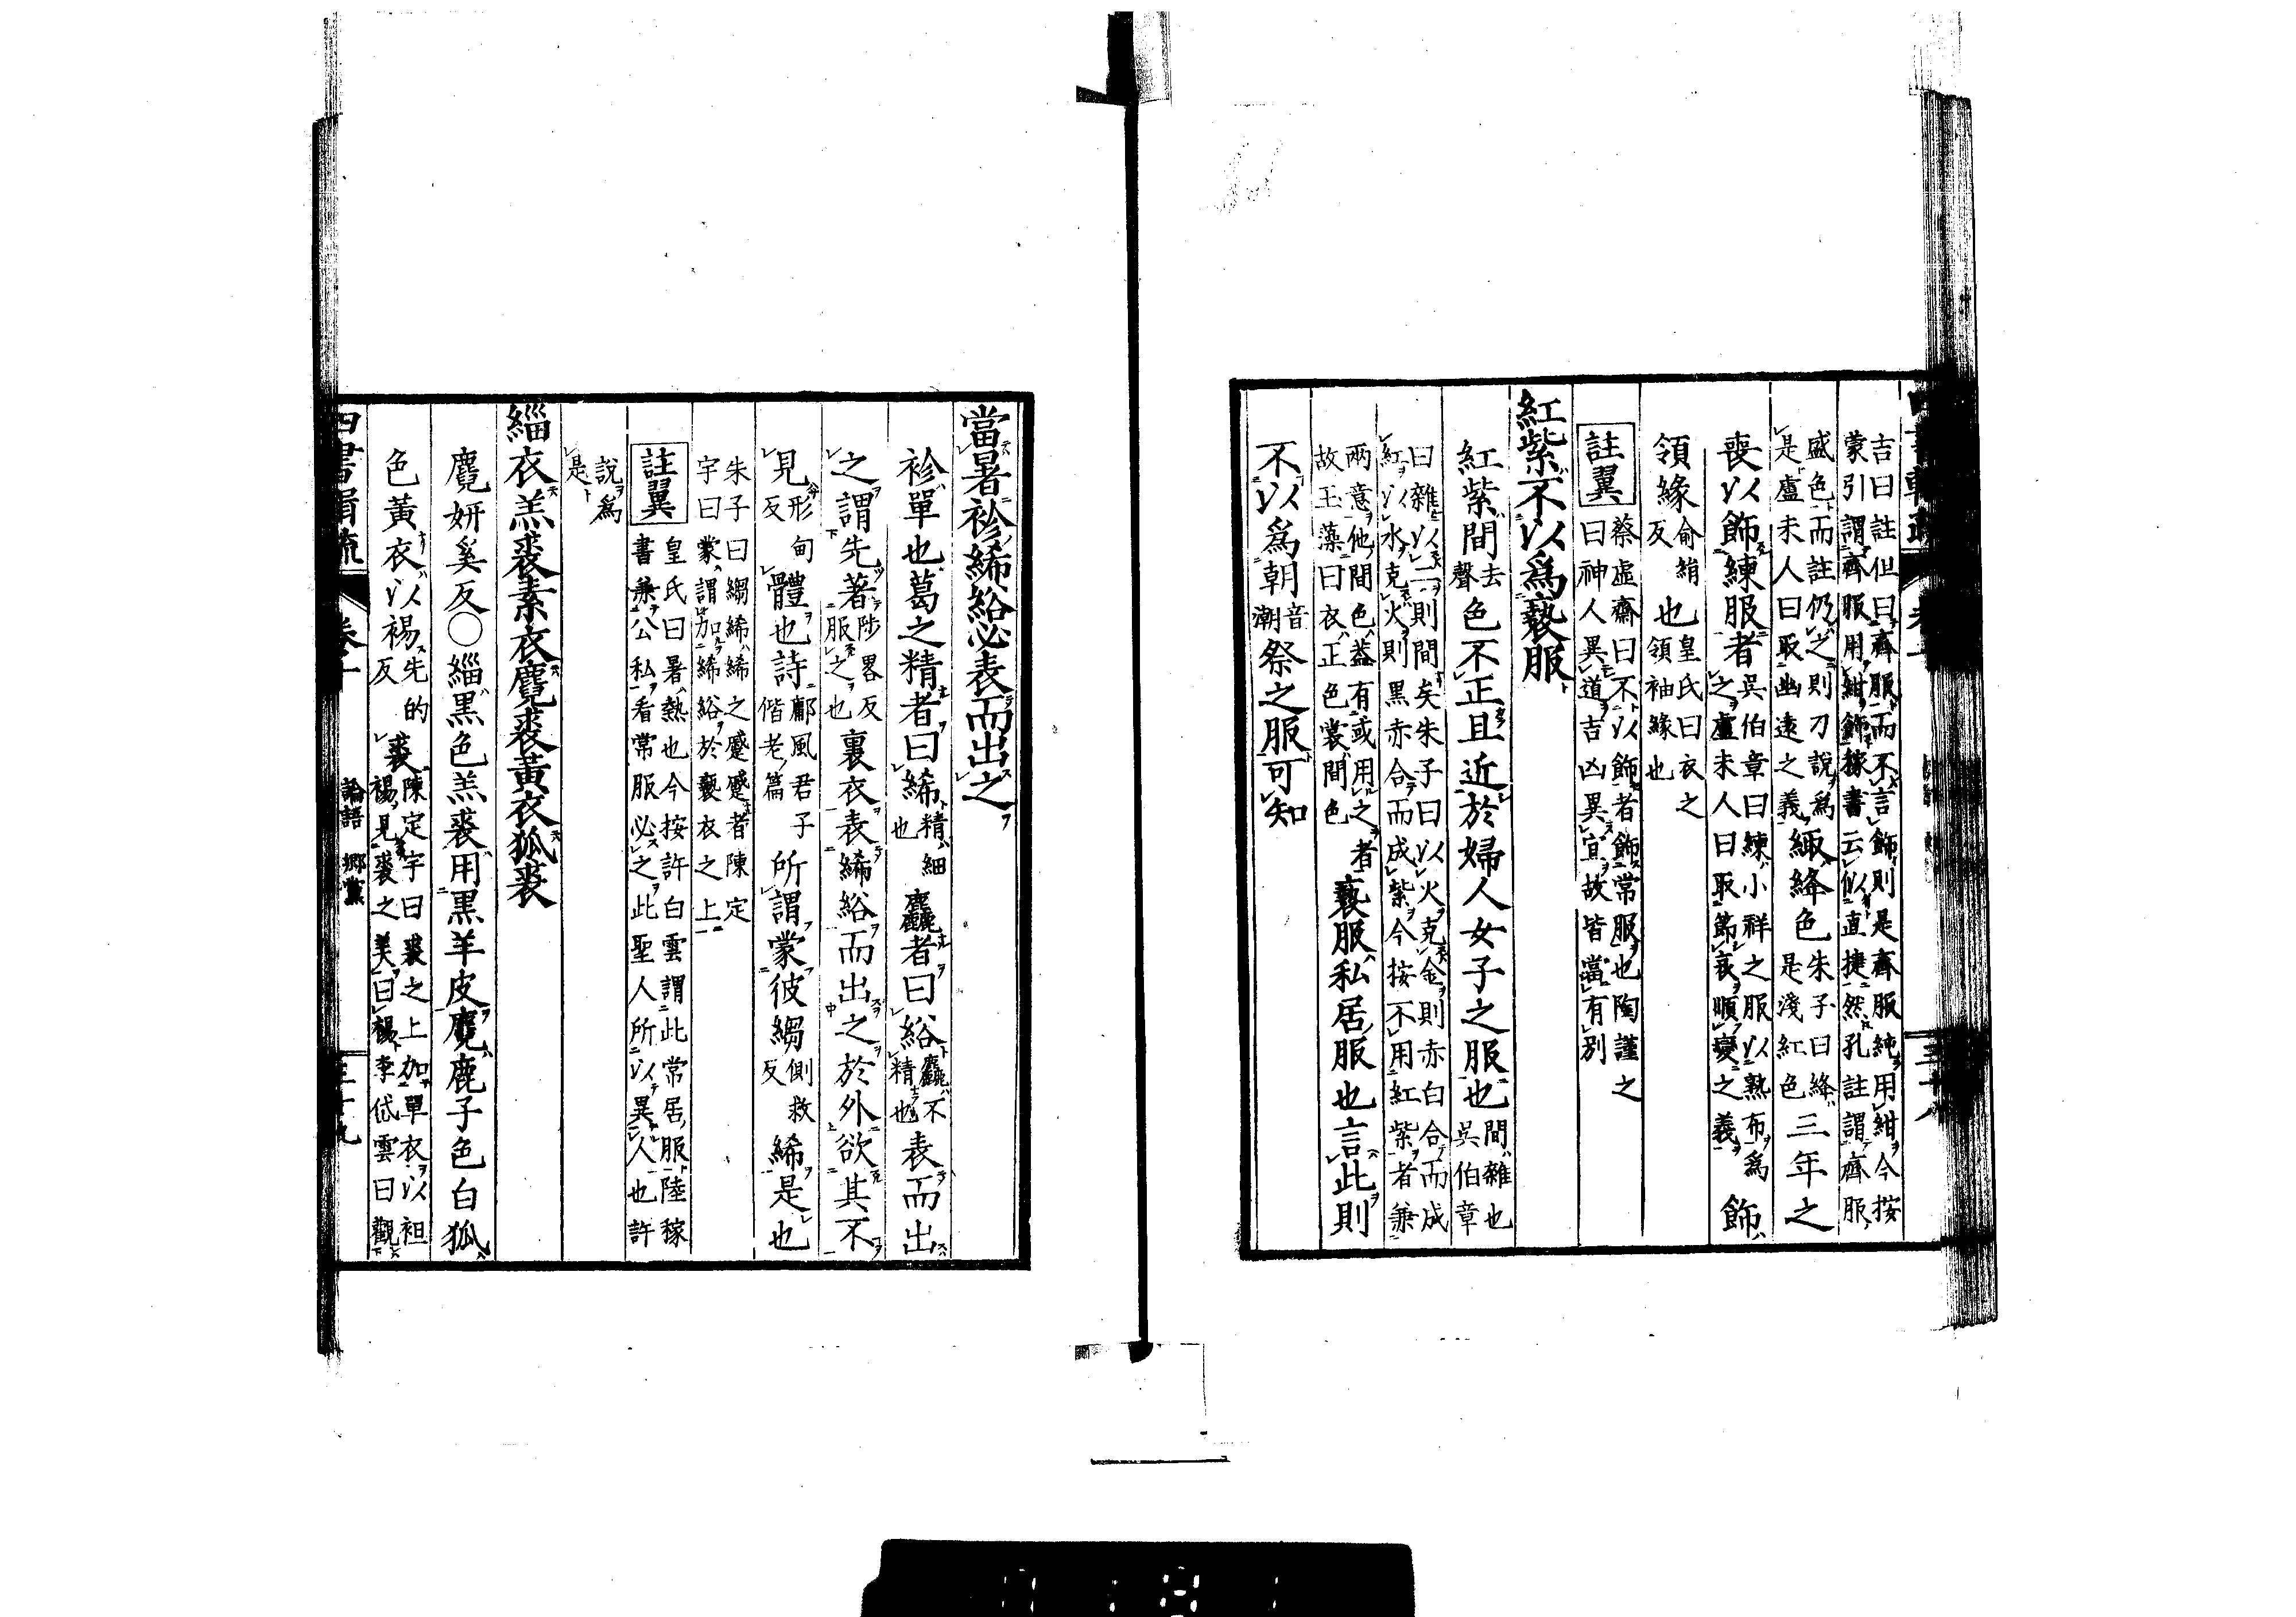 吉曰註但曰齊服而不言飾則是齋服純用紺今按
蒙引謂齊服用紺飾稼書云似直捷然孔註謂齊服
盛色而註仍之則刀說爲
是盧未人曰取幽遠之義
緅絳色
朱子曰絳
是淺紅色
三年之
喪以飾練服者
吳伯章曰練小祥之服以熟布爲
之盧未人曰取飾哀順變之義
飾
領緣
俞絹
反
也
皇氏曰衣之
領袖緣也
註翼
蔡虛齋曰不以飾者飾常服也陶謹之
曰神人異道吉凶異宜故皆當有別
紅紫不以爲褻服
紅紫間
去
聲
色不正且近於婦人女子之服也
間雜也
吳伯章
曰雜以二則間矣朱子曰以火克金則赤白合而成
紅以水克火則黑赤合而成紫今按不用紅紫者兼
兩意他間色蓋有或用之者
故玉藻曰衣正色裳間色
褻服私居服也言此則
不以爲朝
音
潮
祭之服可知
當暑袗絺綌必表而出之
袗單也葛之精者曰絺
精細
也
麤者曰綌
麤不
精也
表而出
之謂先著
陟畧反
服之也
裏衣表絺綌而出之於外欲其不
見
形甸
反
體也詩
鄘風君子
偕老篇
所謂蒙彼縐
側救
反
絺是也
朱子曰縐絺絺之蹙蹙者陳定
宇曰蒙謂加絺綌於褻衣之上
註翼
皇氏曰暑熱也今按許白雲謂此常居服陸稼
書兼公私看常服必之此聖人所以異人也許
說爲
是
緇衣羔裘素衣麑裘黃衣狐裘
麑妍奚反○緇黑色羔裘用黑羊皮麑鹿子色白狐
色黃衣以裼
先的
反
裘
陳定宇曰裘之上加單衣以袒
裼見裘之美曰裼李岱雲曰觀
四書
卷十
論語
鄉黨
三十九